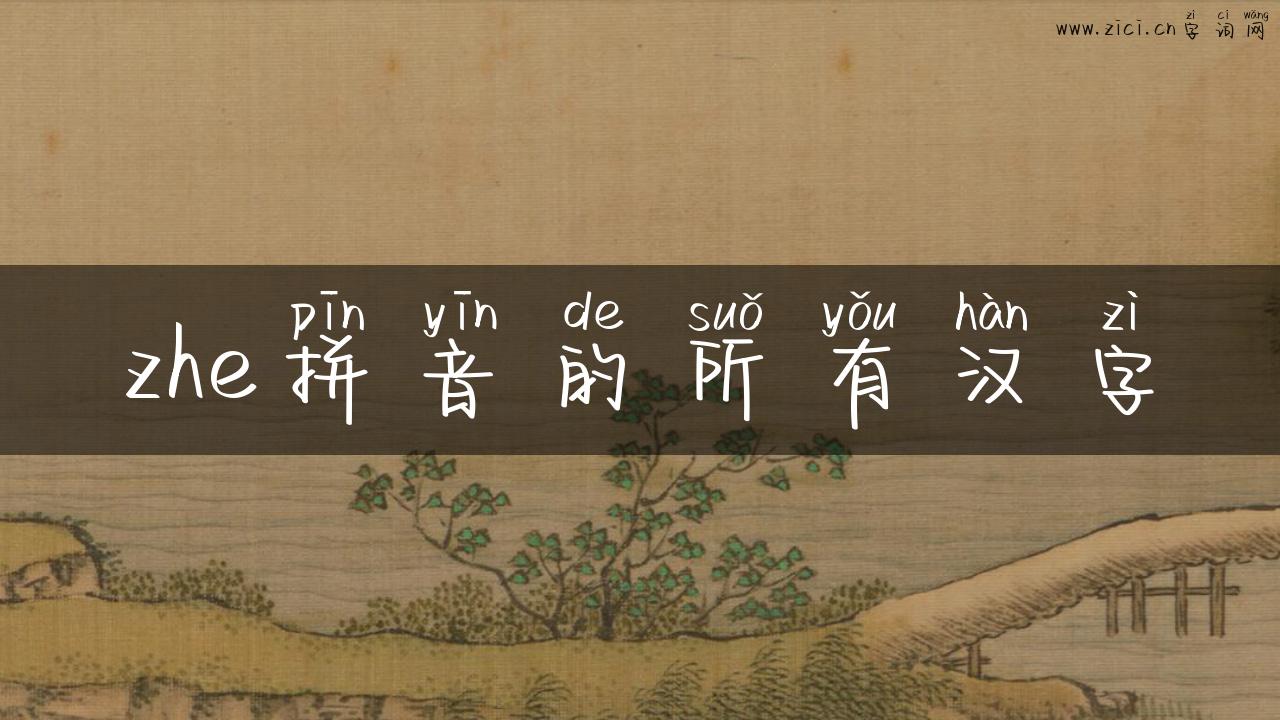 zì cí wǎng
www.zici.cn字词网
pīn yīn de suǒ yǒu hàn zì
zhe拼音的所有汉字